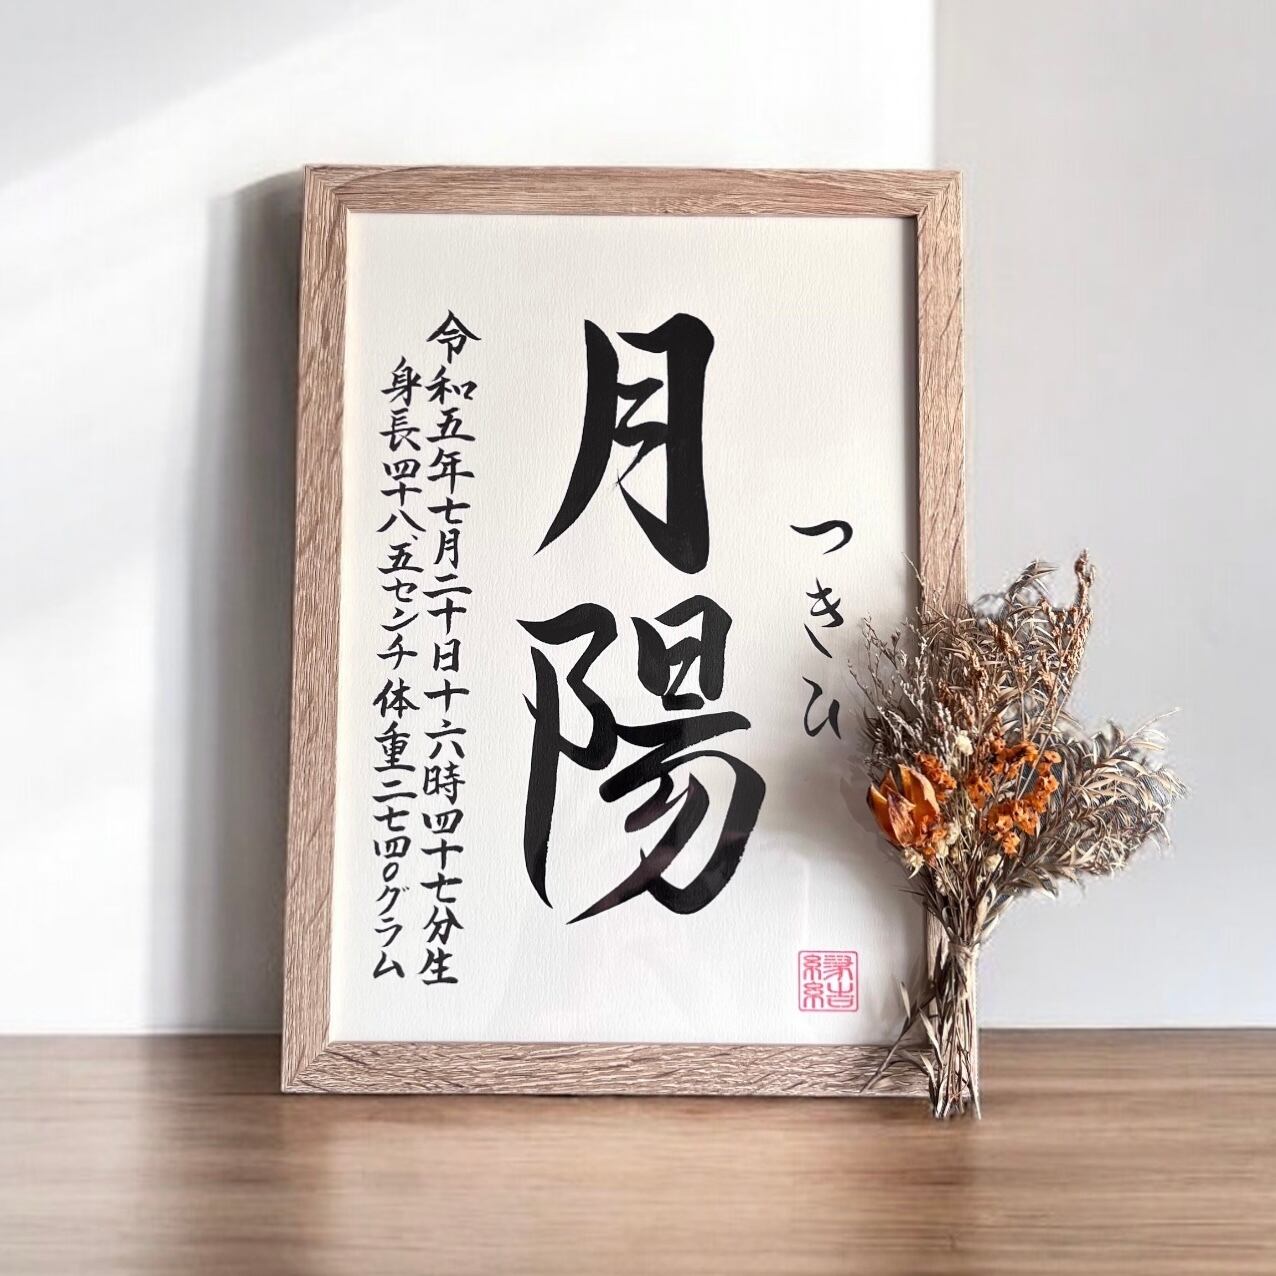 つきひ
月陽
令和五年七月二十日十六時四十七分生
身長四十八、五センチ 体重二七四〇グラム
縁結